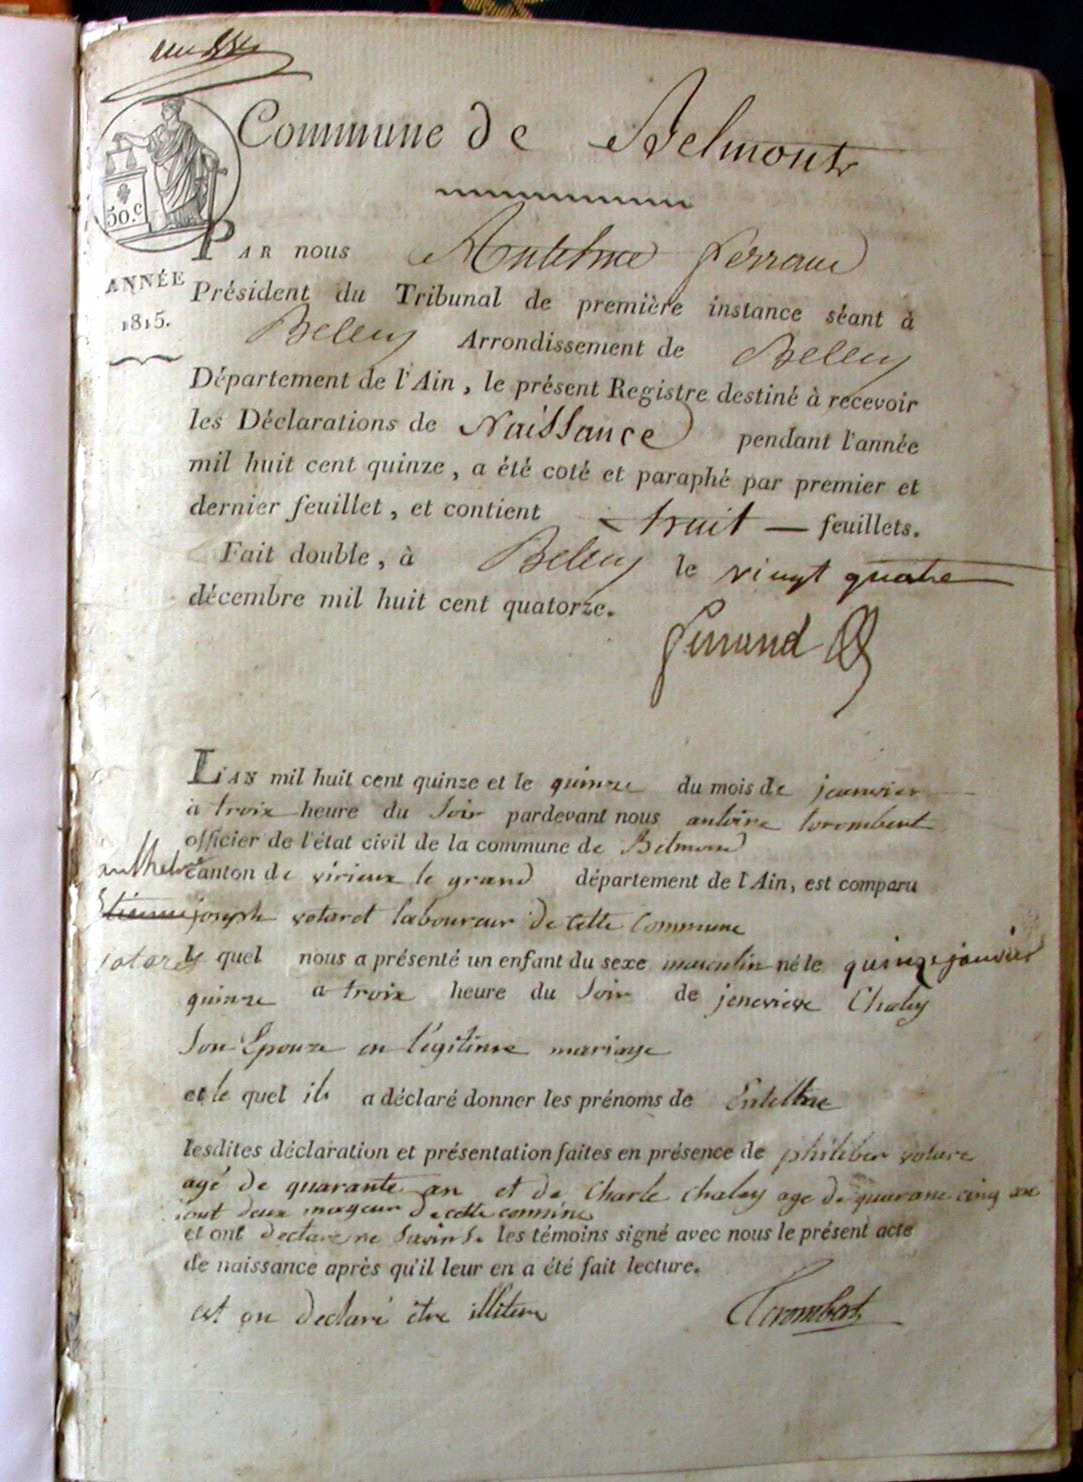 Commune de Belmont
50.c
ANNÉE
1815.
PAR nous Anthelme Ferrand
Président du Tribunal de première instance séant à
Belley Arrondissement de Belley
Département de l'Ain, le présent Registre destiné à recevoir
les Déclarations de Naissance pendant l'année
mil huit cent quinze, a été coté et paraphé par premier et
dernier feuillet, et contient huit — feuillets.
Fait double, à Belley le vingt quatre
décembre mil huit cent quatorze.
Ferrand
L'AN mil huit cent quinze et le quinze du mois de janvier
à troix heure du soir pardevant nous antoine torombert
officier de l'état civil de la commune de Belmond
canton de virieux le grand département de l'Ain, est comparu
anthelme
Etienne joseph votaret laboureur de cette commune
votaret
le quel nous a présenté un enfant du sexe masculin né le quinze janvier
quinze a troix heure du soir de jenevieve Chaley
son Epouze en légitime mariage
et le quel il a déclaré donner les prénoms de Entelme
lesdites déclaration et présentation faites en présence de philiber votare
agé de quarante an et de Charle chaley age de quarane cinq an
tout deux mageur de cette commine
et ont declare ne savir les témoins signé avec nous le présent acte
de naissance après qu'il leur en a été fait lecture.
est on declaré être illitere
Torombert